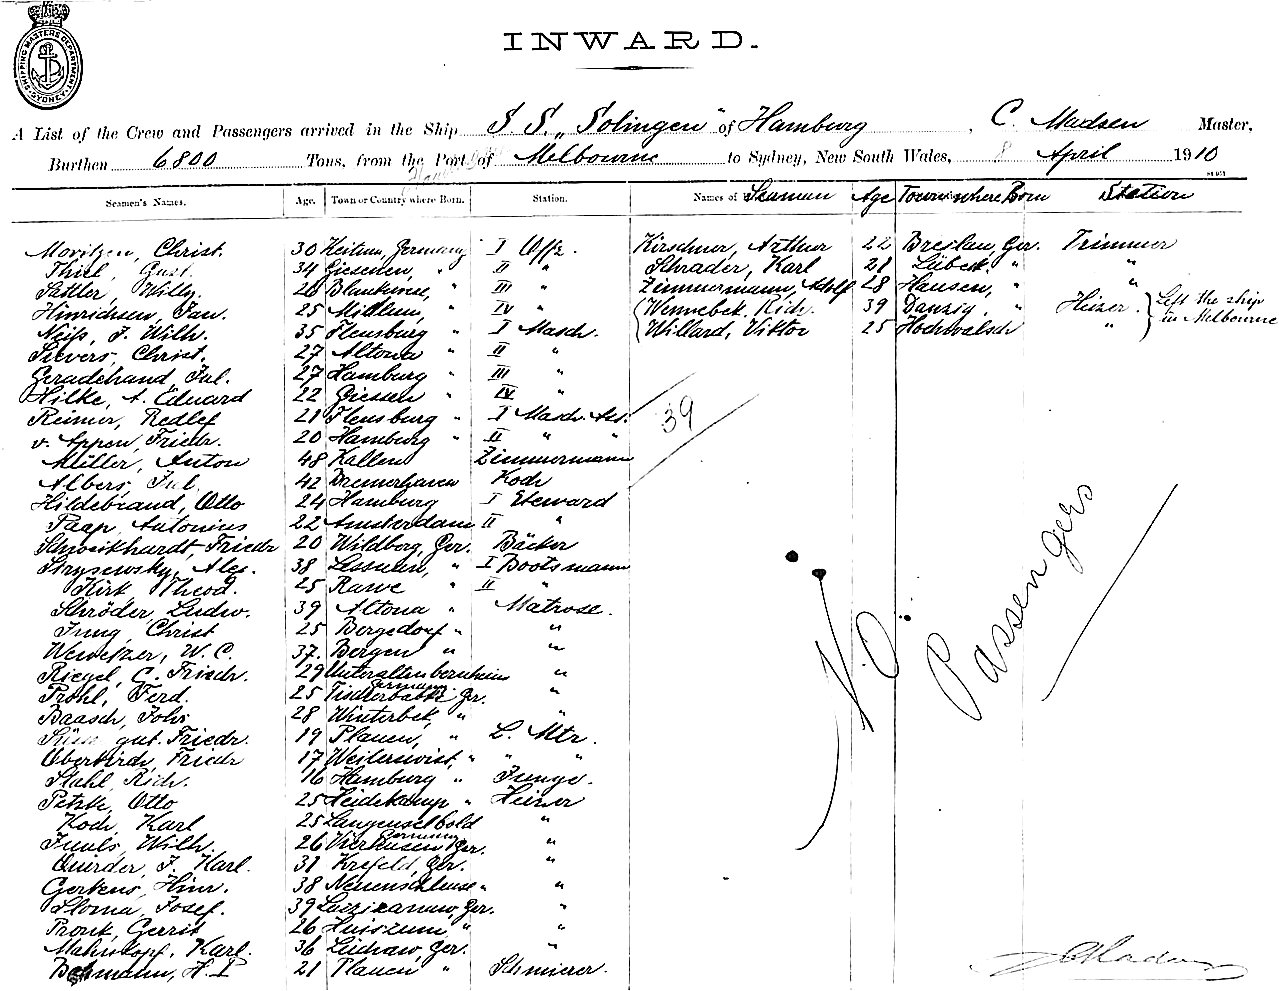 SHIPPING MASTERS DEPARTMENT
SYDNEY
INWARD.
A List of the Crew and Passengers arrived in the Ship S. S. „Solingen" of Hamburg, C. Madsen Master,
Burthen 6800 Tons, from the Port of Melbourne to Sydney, New South Wales, 8 April 1910
Seamen's Names. Age. Town or Country where Born. Station. Names of Seamen Age Town where Born Station
Moritzen, Christ. 30 Keitum, Germany I Offz. Kirschner, Arthur 22 Breslau, Ger. Trimmer
Thiel, Gust. 34 Giesenen, " II " Schrader, Karl 21 Lübeck. " "
Sattler, Willy. 26 Blankense, " III " Zimmermann, Adolf 28 Hausen, " "
Hinrichsen, Jan. 25 Midlum, " IV " (Wennebek. Rich. 39 Danzig, " Heizer. } Left the ship
Neiß, F. Wilh. 35 Flensburg " I Masch. (Willard, Viktor 25 Hochwalsch " } in Melbourne
Sievers, Christ. 27 Altona " II "
Geradehand, Jul. 27 Hamburg " III "
Hilke, A. Eduard 22 Giessen " IV "
Reimer, Redlef 21 Flensburg " I Masch. Ass.
39
v. Appen, Friedr. 20 Hamburg " II " "
Müller, Anton 48 Kallen Zimmermann
Albers, Jul. 42 Bremerhaven Koch
Hildebrand, Otto 24 Hamburg I Steward
Paap Antonius 22 Amsterdam II "
Schweikhardt, Friedr 20 Wildberg, Ger. Bäcker
Strysewsky, Alex. 38 Lessen, " I Bootsmann
Kirk Theod. 25 Rawe " II "
Schröder, Ludw. 39 Altona " Matrose.
Jung, Christ 25 Bergedorf " "
W. C. 37. Bergen " "
Riegel, C. Friedr. 29 Unteraltenbernheim "
Germany
Prohl, Ferd. 25 Ger. "
Baasch, Johs 28 Winterbek, " "
gut. Friedr. 19 Plauen, " L. Mtr.
Oberkirch, Friedr 17 Weilerswist, " " "
Stahl, Rich. 16 Hamburg " Junge.
Petzk, Otto 25 Heidekamp " Heizer
Koch, Karl 25 Langenselbold "
Germany
Juuls, Wilh. 26 Ger. "
Quirder, F. Karl. 31 Krefeld, Ger. "
Gerkens, Hinr. 38 Neuenschleuse " "
Sloma, Josef. 39 Ger. "
Pronk, Gerrit 26 Huiszum " "
Mahnkopf, Karl. 36 Lüchow, Ger. "
H. P 21 Plauen " Schmierer.
No Passengers
C Madsen